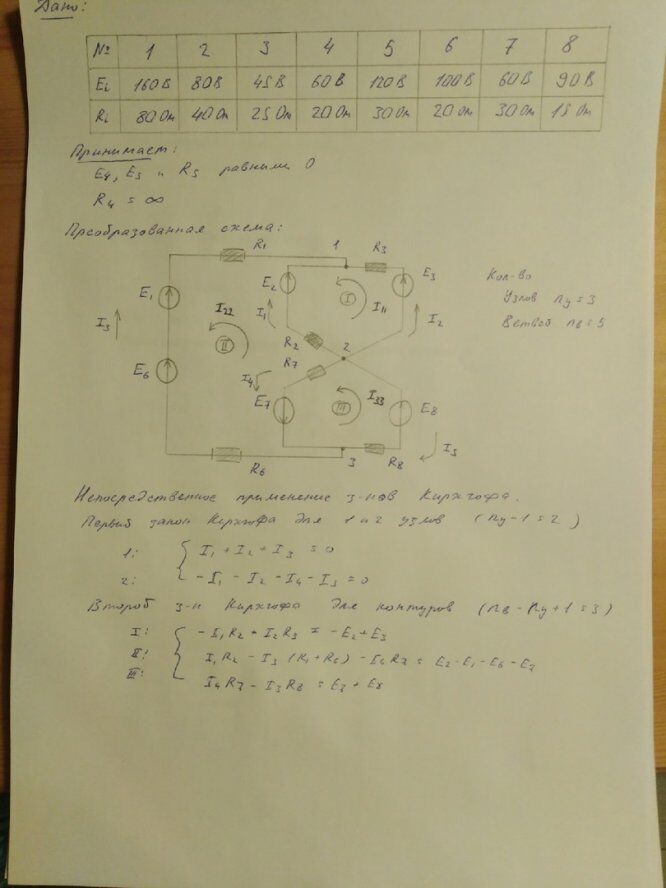 Дано:
№ 1 2 3 4 5 6 7 8
Ei 160 В 80 В 45 В 60 В 120 В 100 В 60 В 90 В
Ri 80 Ом 40 Ом 25 Ом 20 Ом 30 Ом 20 Ом 30 Ом 15 Ом
Принимаем:
E4, E5 и R5 равными 0
R4 = ∞
Преобразованная схема:
R1 1 R3
E2 E3
Кол-во
Узлов nу = 3
Ветвей nв = 5
E1 I22 I I11
I3 I1 I2
II R2 2
E6 I4 R7
E7 III I33 E8
R6 3 R8 I5
Непосредственное применение з-нов Кирхгофа.
Первый закон Кирхгофа для 1 и 2 узлов (nу-1=2)
1: I1 + I2 + I3 = 0
2: -I1 - I2 - I4 - I5 = 0
Второй з-н Кирхгофа для контуров (nв-nу+1=3)
I: -I1R2 + I2R3 = -E2+E3
II: I1R2 - I3 (R1+R6) - I4R7 = E2-E1-E6-E7
III: I4R7 - I5R8 = E7+E8